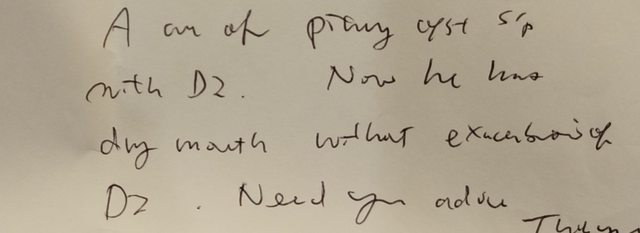 A case of pitury cyst s/p
with DZ. Now he has
dry mouth without exacerbation of
DZ. Need your advice